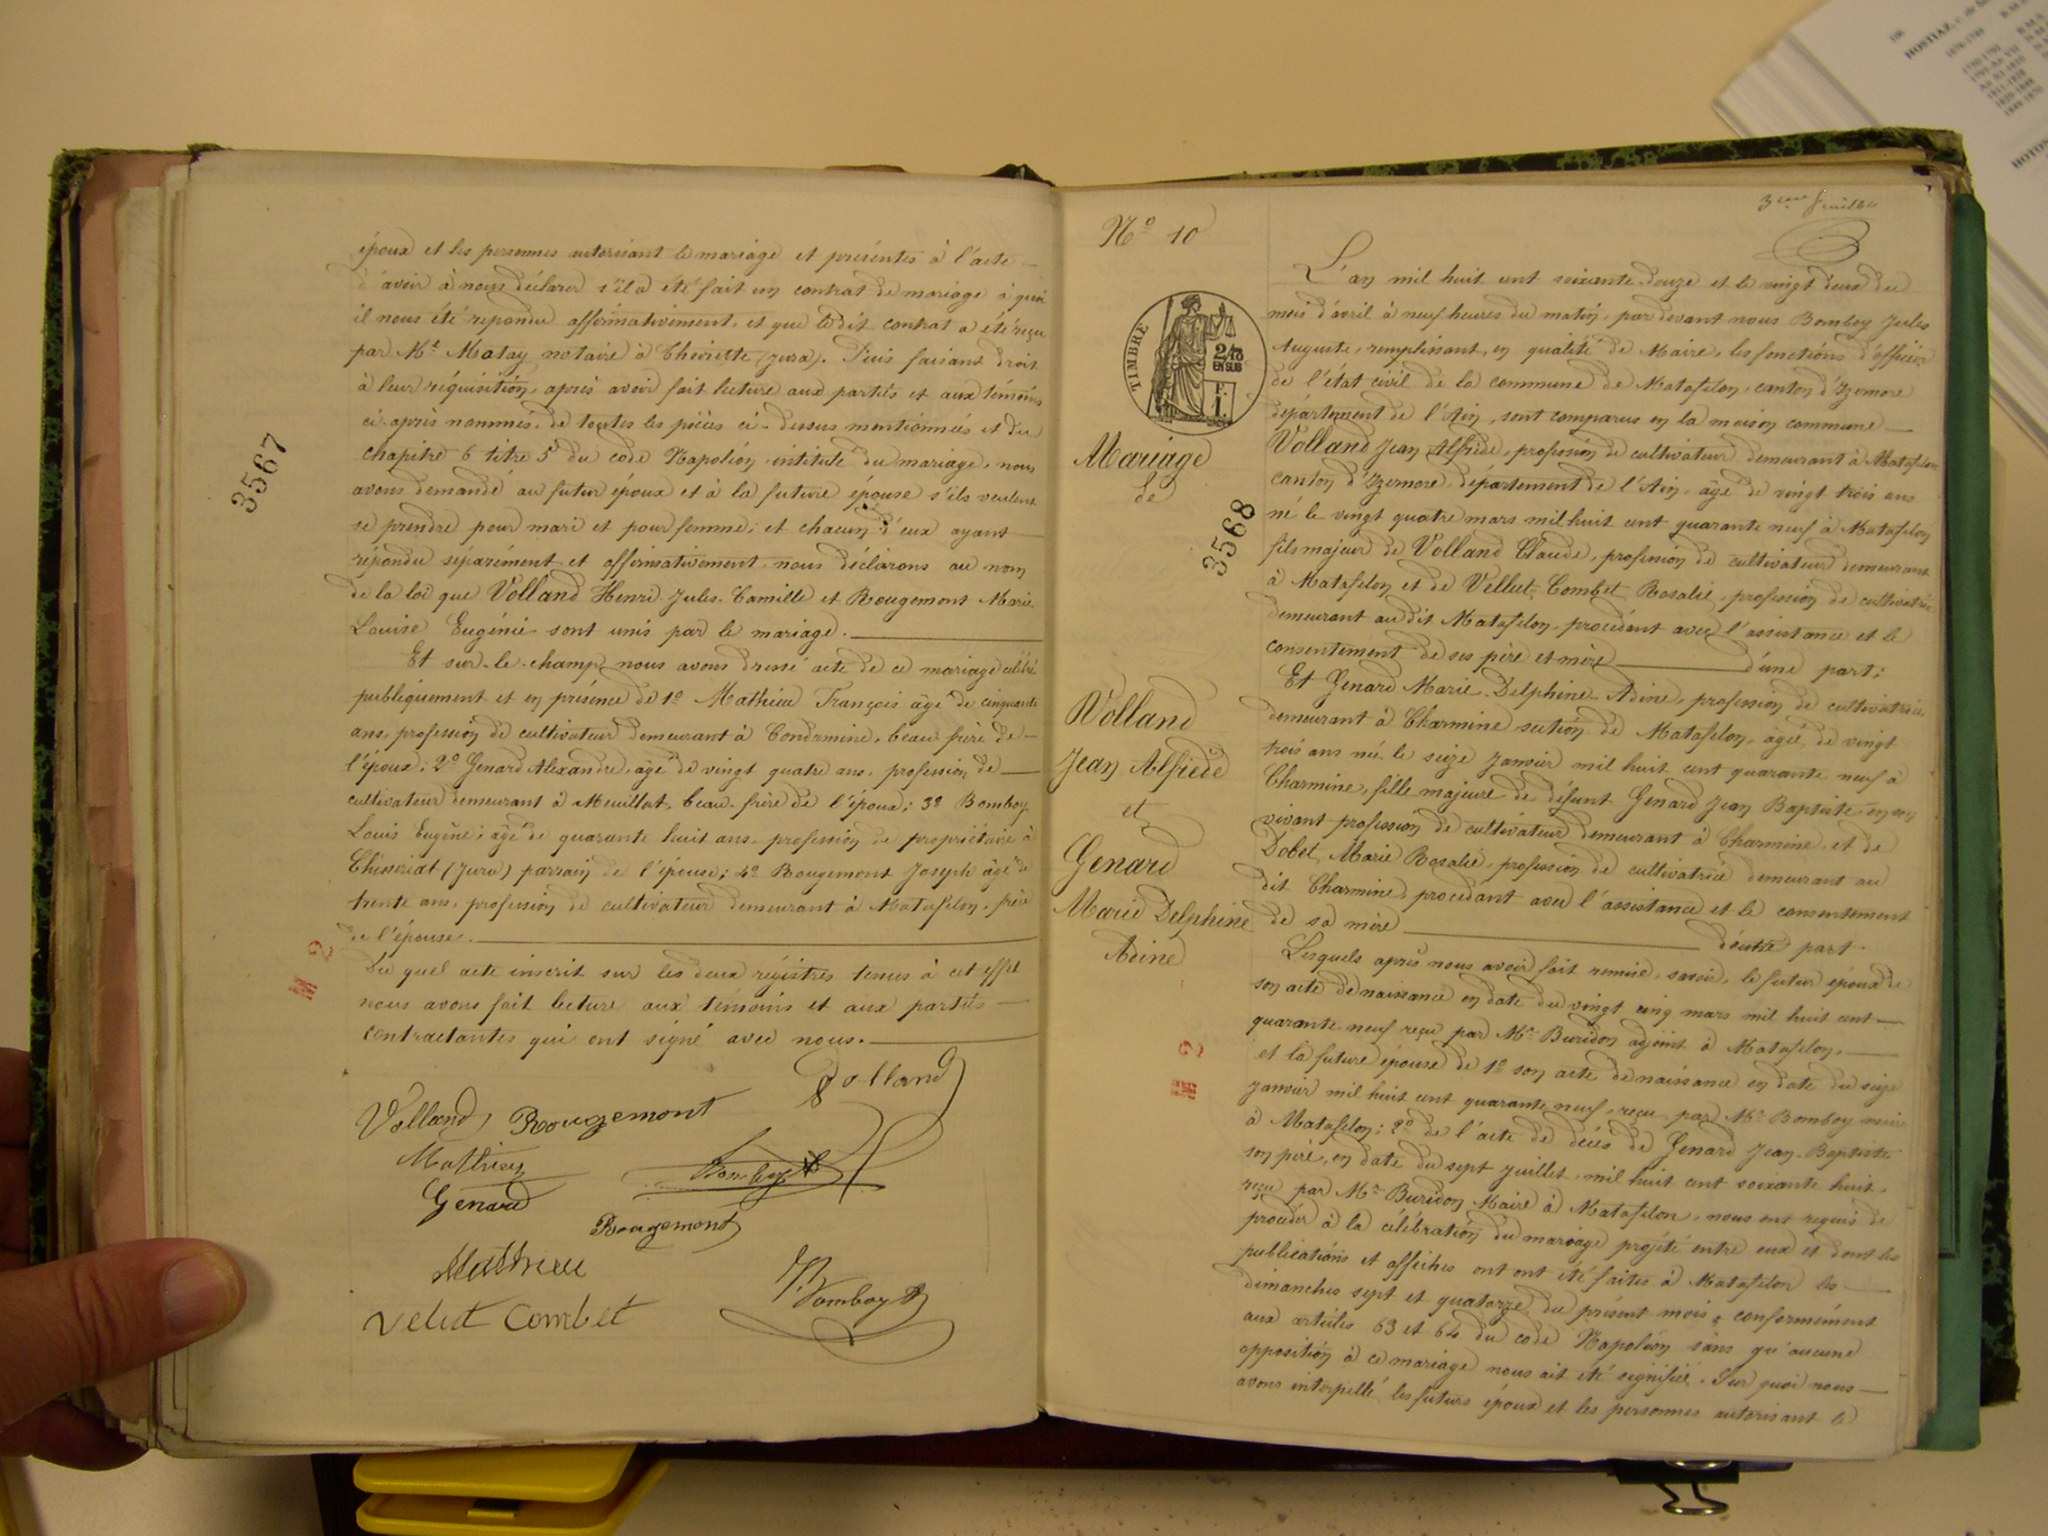 3567
époux et les personnes autorisant le mariage et présentes à l'acte
d'avoir à nous déclarer s'il a été fait un contrat de mariage à quoi
il nous été repondu affirmativement, et que le dit contrat a été reçu
par Mt Matay notaire à (Jura). Puis faisant droit
à leur réquisition, après avoir fait lecture aux parties et aux témoins
ci-après nommés, de toutes les pièces ci-dessus mentionnées et du
chapitre 6 titre 5 du code Napoléon intitulé du mariage, nous
avons demandé au futur époux et à la future épouse s'ils veulent
se prendre pour mari et pour femme; et chacun d'eux ayant
répondu séparément et affirmativement, nous déclarons au nom
de la loi que Volland Henri Jules Camille et Rougemont Marie
Louise Eugénie sont unis par le mariage.
Et sur-le-champ nous avons dressé acte de ce mariage célébré
publiquement et en présence de 1o Mathieu François âgé de cinquante
ans, profession de cultivateur demeurant à Condamine, beau-frère de
l'époux; 2o Genard Alexandre, âgé de vingt quatre ans, profession de
cultivateur demeurant à Meuillat, beau-frère de l'époux; 3o Bomboy
Louis Eugène, âgé de quarante huit ans, profession de propriétaire à
(Jura) parrain de l'épouse; 4o Rougemont Joseph âgé de
trente ans, profession de cultivateur demeurant à Matafelon, frère
de l'épouse.
Du quel acte inscrit sur les deux registres tenus à cet effet
nous avons fait lecture aux témoins et aux parties
contractantes qui ont signé avec nous.
Volland
Volland Rougemont
Mathieu
Bomboy
Genard
Rougemont
Mathieu
Bomboy
Velut Combet
M 2
3eme feuille
No 10
TIMBRE
2/10
EN SUS
Mariage
de
3568
Volland
Jean Alfrede
et
Genard
Marie Delphine
Adine
M 2
L'an mil huit cent soixante-douze et le vingt deux du
mois d'avril à neuf heures du matin, par devant nous Bomboy Jules
Auguste, remplissant, en qualité de Maire, les fonctions d'officier
de l'état civil de la commune de Matafelon, canton d'Izernore
département de l'Ain, sont comparus en la maison commune
Volland Jean Alfrède, profession de cultivateur demeurant à Matafelon
canton d'Izernore, département de l'Ain, âgé de vingt trois ans
né le vingt quatre mars mil huit cent quarante neuf à Matafelon
fils majeur de Volland Claude, profession de cultivateur demeurant
à Matafelon et de Vellut-Combet Rosalie, profession de cultivatrice
demeurant au dit Matafelon, procédant avec l'assistance et le
consentement de ses père et mère d'une part;
Et Genard Marie Delphine Adine, profession de cultivatrice
demeurant à Charmine section de Matafelon, âgée de vingt
trois ans né le seize Janvier mil huit cent quarante neuf à
Charmine, fille majeure de défunt Genard Jean Baptiste en son
vivant profession de cultivateur demeurant à Charmine, et de
Dobet Marie Rosalie, profession de cultivatrice demeurant au
dit Charmine, procédant avec l'assistance et le consentement
de sa mère d'autre part.
Lesquels après nous avoir fait remise, savoir, le futur époux de
son acte de naissance en date du vingt cinq mars mil huit cent
quarante neuf reçu par Mr Buridon adjoint à Matafelon,
et la future épouse de 1o son acte de naissance en date du seize
janvier mil huit cent quarante neuf, reçu par Mr Bomboy maire
à Matafelon; 2o de l'acte de décès de Genard Jean-Baptiste
son père, en date du sept juillet mil huit cent soixante huit,
reçu par Mr Buridon Maire à Matafelon, nous ont requis de
procéder à la célébration du mariage projeté entre eux et dont les
publications et affiches ont ont été faites à Matafelon les
dimanches sept et quatorze du présent mois, conformément
aux articles 63 et 64 du code Napoléon sans qu'aucune
opposition à ce mariage nous ait été signifié. Sur quoi nous
avons interpellé les futurs époux et les personnes autorisant le
HOTO